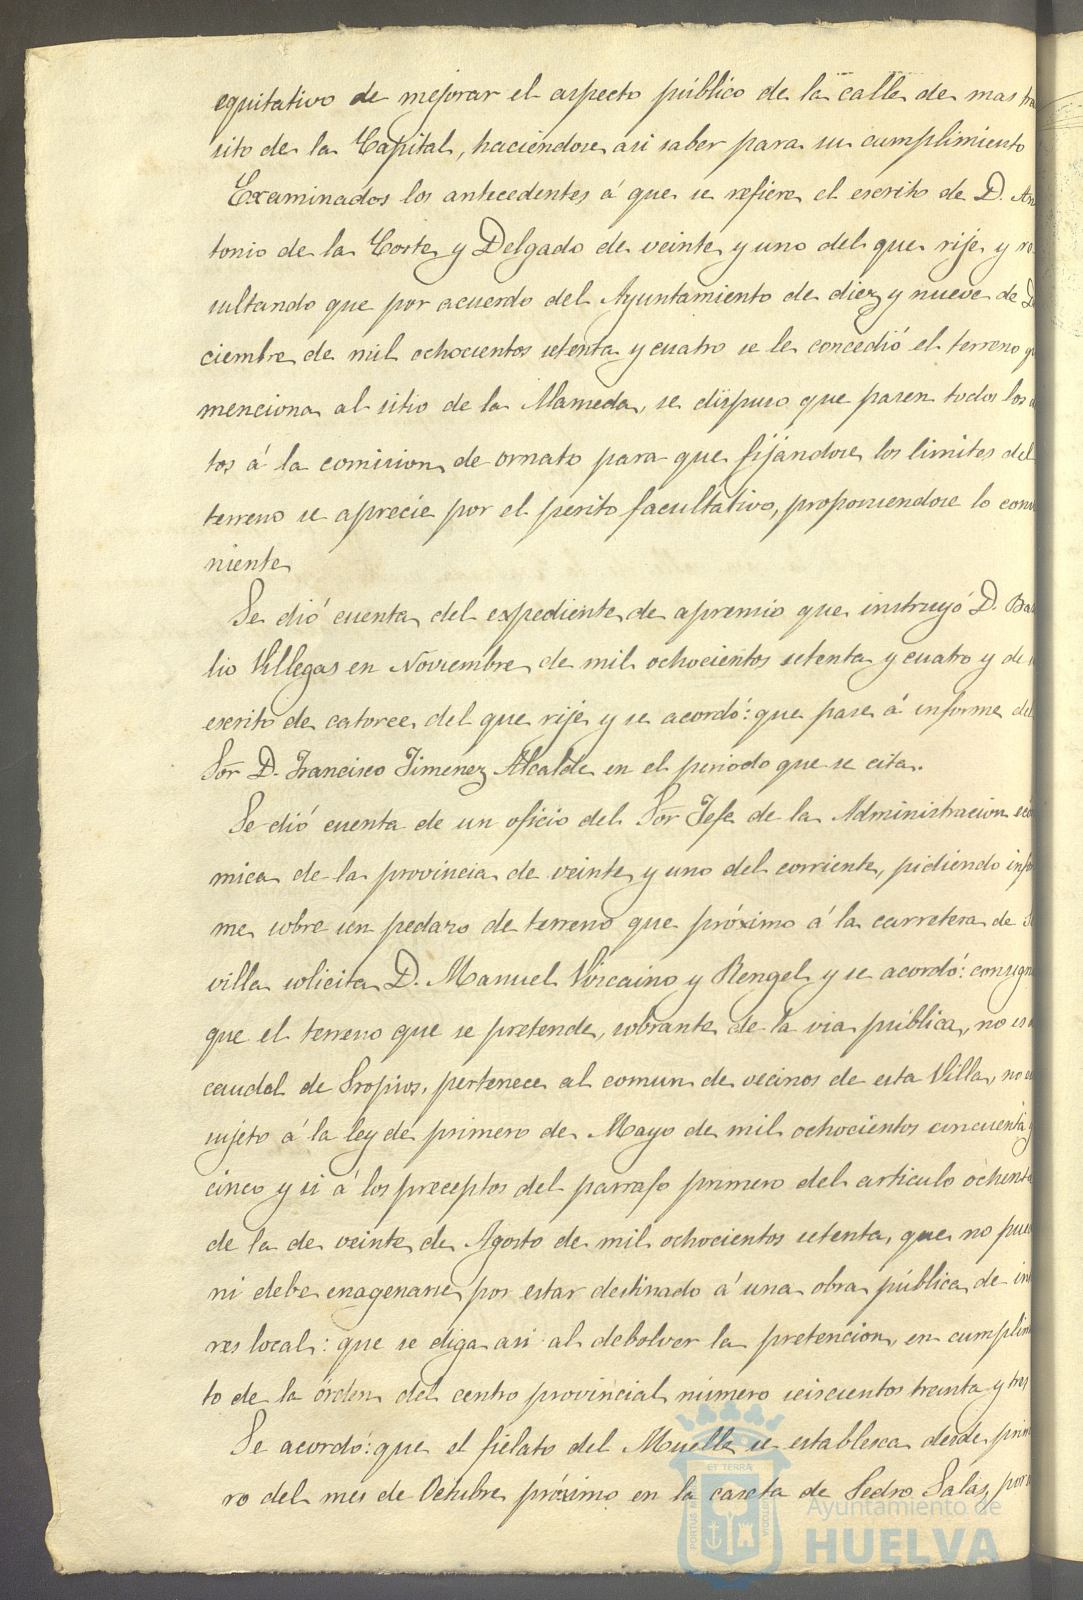 equitativo de mejorar el aspecto público de la calle de mas tra
sito de la Capital, haciendose asi saber para su cumplimiento
Examinados los antecedentes á que se refiere el escrito de D. An
tonio de la Corte y Delgado de veinte y uno del que rije y re
sultando que por acuerdo del Ayuntamiento de diez y nueve de Di
ciembre de mil ochocientos setenta y cuatro se le concedió el terreno q
menciona al sitio de la Alameda, se dispuso que pasen todos los a
tos á la comision de ornato para que fijandose los limites del
terreno se aprecie por el perito facultativo, proponiendose lo conve
niente
Se dió cuenta del expediente de apremio que instruyó D. Basi
lio Villegas en Noviembre de mil ochocientos setenta y cuatro y de
escrito de catorce del que rije y se acordó: que pase á informe del
Sor D. Francisco Jimenez Alcalde en el periodo que se cita.
Se dió cuenta de un oficio del Sor Jefe de la Administracion eco
mica de la provincia de veinte y uno del corriente, pidiendo info
me sobre un pedazo de terreno que próximo á la carretera de Se
villa solicita D. Manuel Viscaino y Rengel y se acordó: consign
que el terreno que se pretende, sobrante de la via pública, no es
caudal de Propios, pertenece al comun de vecinos de esta Villa, no
sujeto á la ley de primero de Mayo de mil ochocientos cincuenta y
cinco y si á los preceptos del parrafo primero del articulo ochenta
de la de veinte de Agosto de mil ochocientos setenta, que no pue
ni debe enagenarse por estar destinado á una obra pública de inte
res local: que se diga asi al debolver la pretencion, en cumplim
to de la órden del centro provincial número seiscientos treinta y tres
Se acordó: que el fielato del Muelle se establesca desde prim
ro del mes de Octubre próximo en la caseta de Pedro Salas, por
Ayuntamiento de
HUELVA